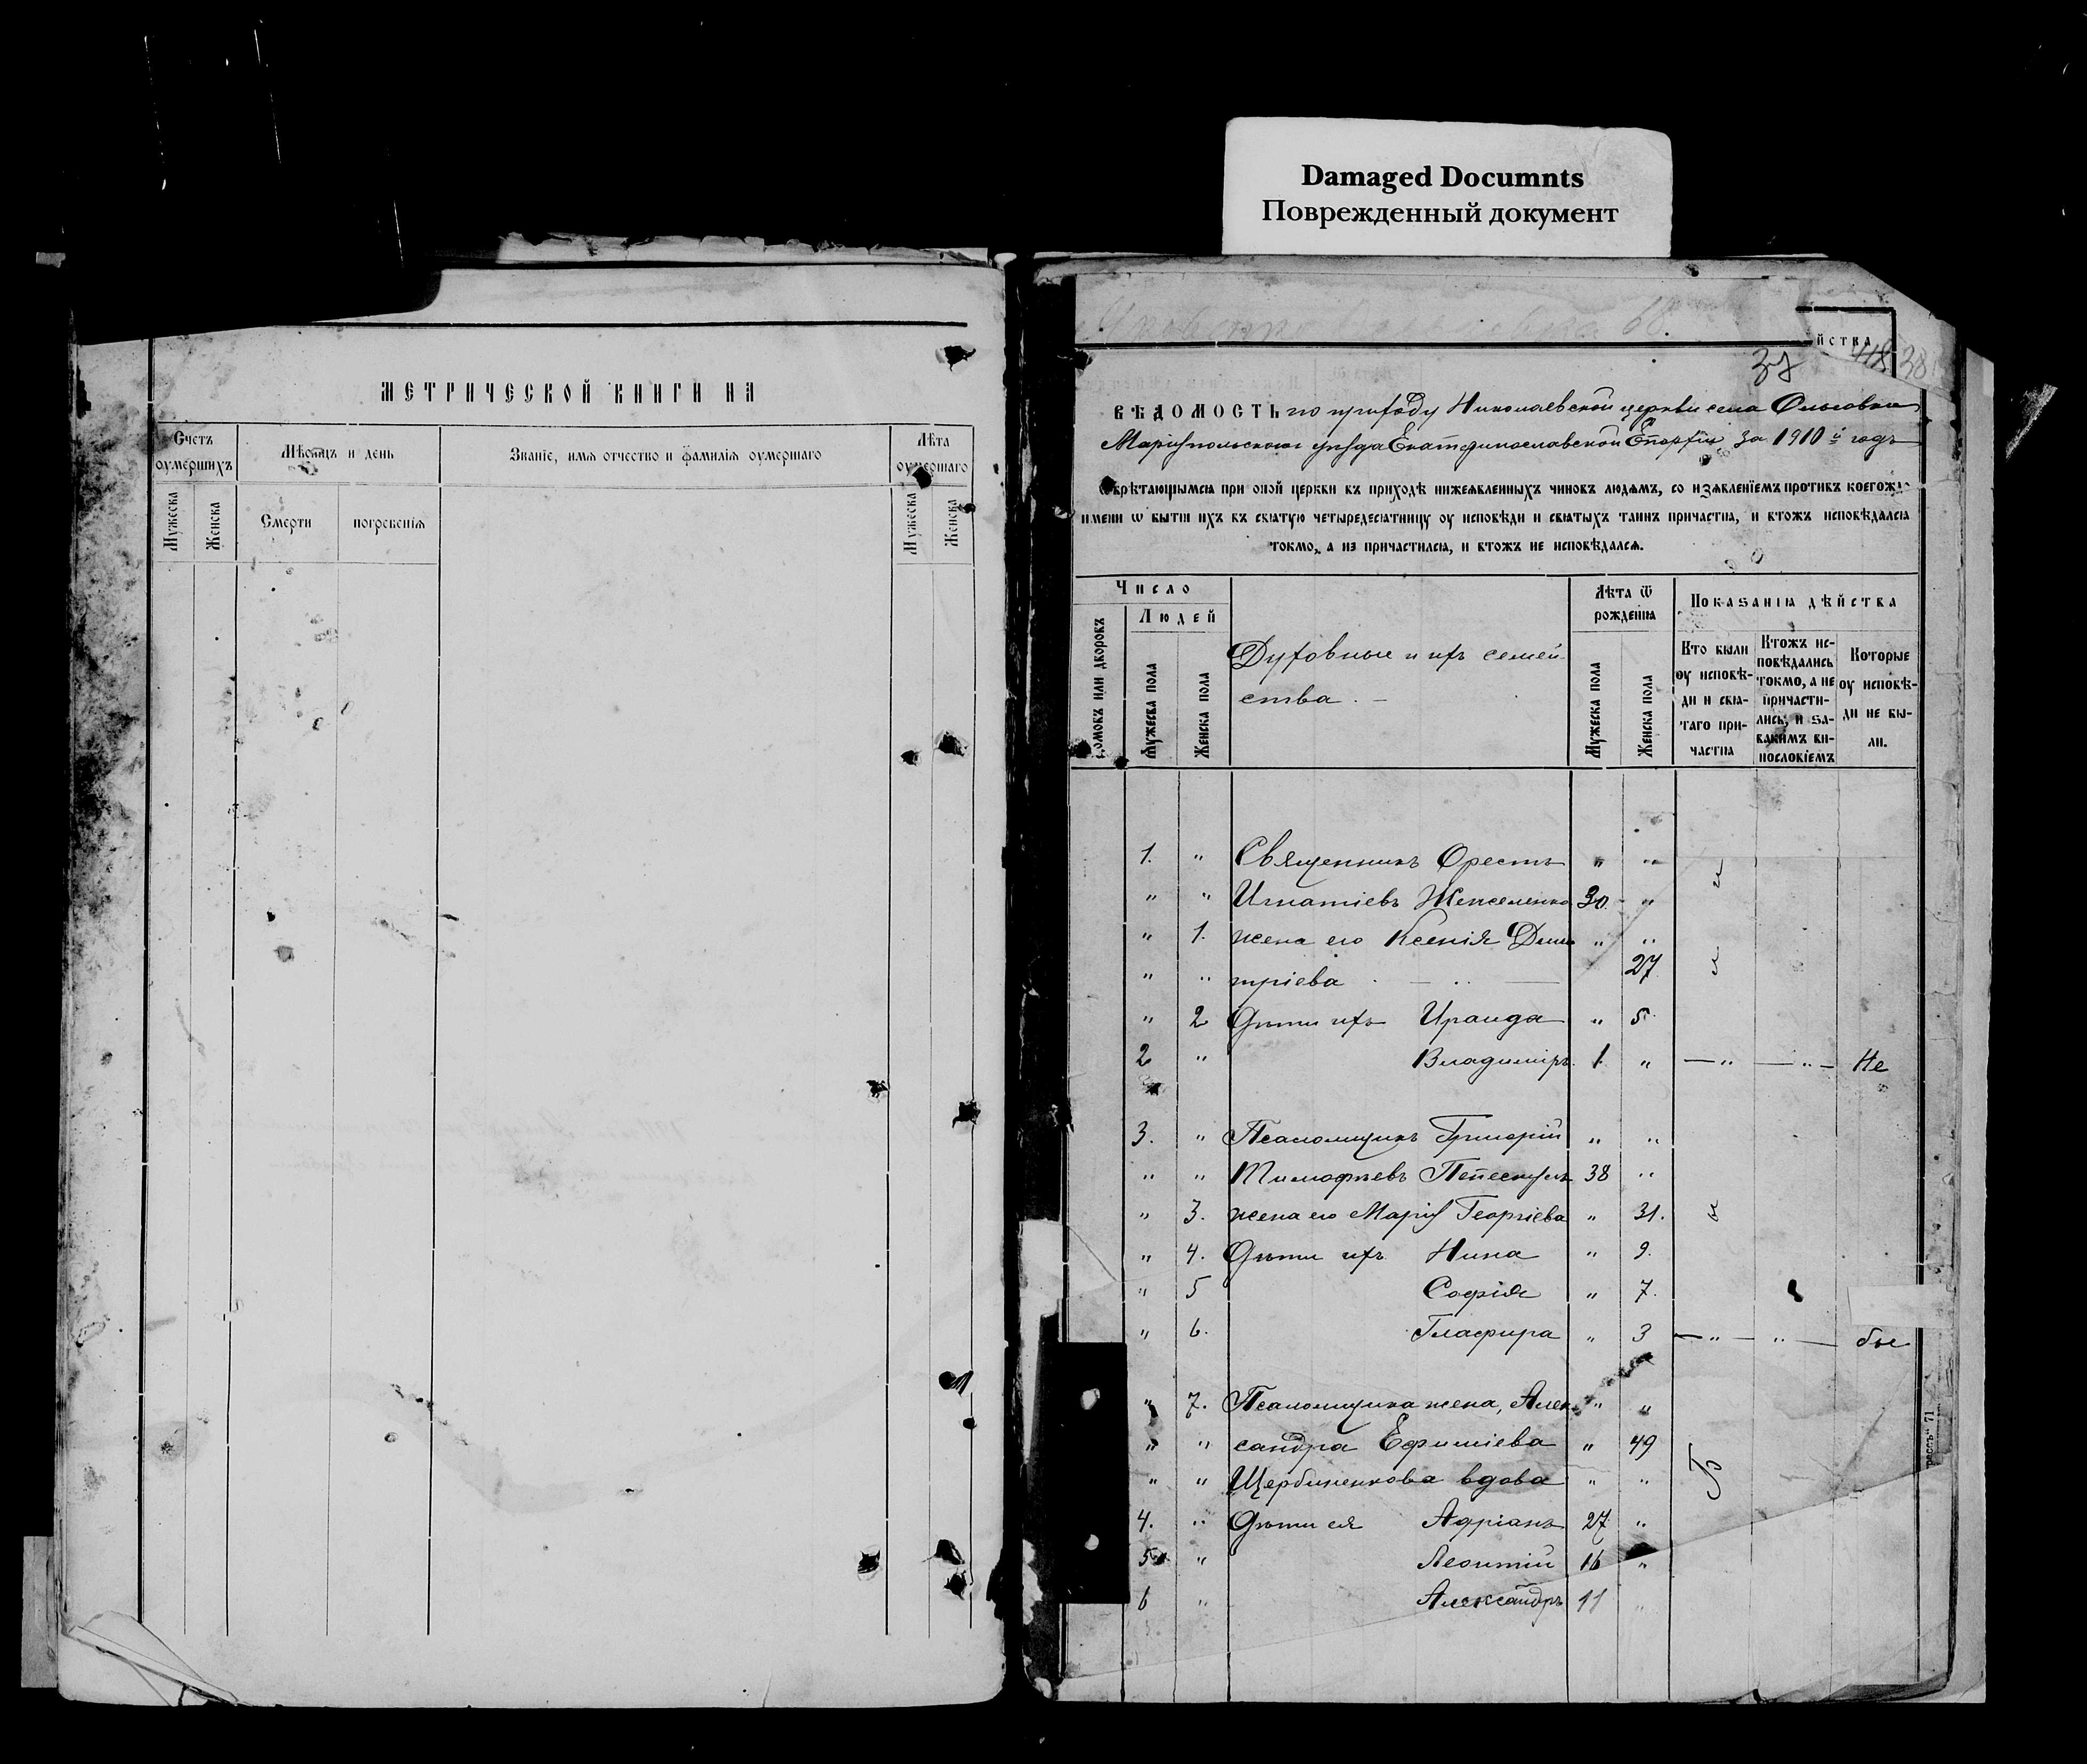 Damaged Documnts
Поврежденный документ
МЕТРИЧЕСКОЙ КНИГИ НА
Счетъ оумершихъ
Мѣсяцъ и день
Званіе, имя отчество и фамилія оумершаго
Лѣта оумершаго
Мужеска
Женска
Смерти
погребенія
Мужеска
Женска
йства
38
ВѢДОМОСТЬ по приходу Николаевской церкви села Ольговки
Маріупольскаго уѣзда Екатеринославской Епархіи за 1910 й годъ
Ѡбрѣтающымся при оной церкви въ приходѣ нижеявленныхъ чиновъ людямъ, со изъявленіемъ противъ коегождо
имени ѡ бытіи ихъ въ святую четыредесятницу оу исповѣди и святыхъ таинъ причастіа, и ктожъ исповѣдался
токмо, а не причастился, и ктожъ не исповѣдался.
Число
Людей
домовъ или дворовъ
Мужеска пола
Женска пола
Духовные и ихъ семей-
ства. —
Лѣта ѿ рожденія
Мужеска пола
Женска пола
Показанія дѣйства
Кто были оу исповѣ-ди и свя-таго при-частіа
Ктожъ ис-повѣдались токмо, а не причасти-лись, и за-какимъ ви-нословіемъ
Которые оу исповѣ-ди не бы-ли.
1. " Священникъ Орестъ " "
" " Игнатіевъ 30 "
" 1. жена его Ксенія Дими " "
" " тріева 27
" 2 Дѣти ихъ Ираида " 5
2 " Владиміръ 1 " — " — " — Не
3. " Псаломщикъ Григорій " "
" " Тимофѣевъ 38 "
" 3. жена его Марія Георгіева " 31.
" 4. Дѣти ихъ Нина " 9.
" 5 Софія " 7.
" 6. Глафира " 3 — " — " — бы
" 7. Псаломщика жена, Алек " "
" " сандра Ефиміева " 49
" " Щербиненкова вдова " "
4. " Дѣти ея Адріанъ 27 "
5 " Леонтій 16 "
6 " Александръ 11 "